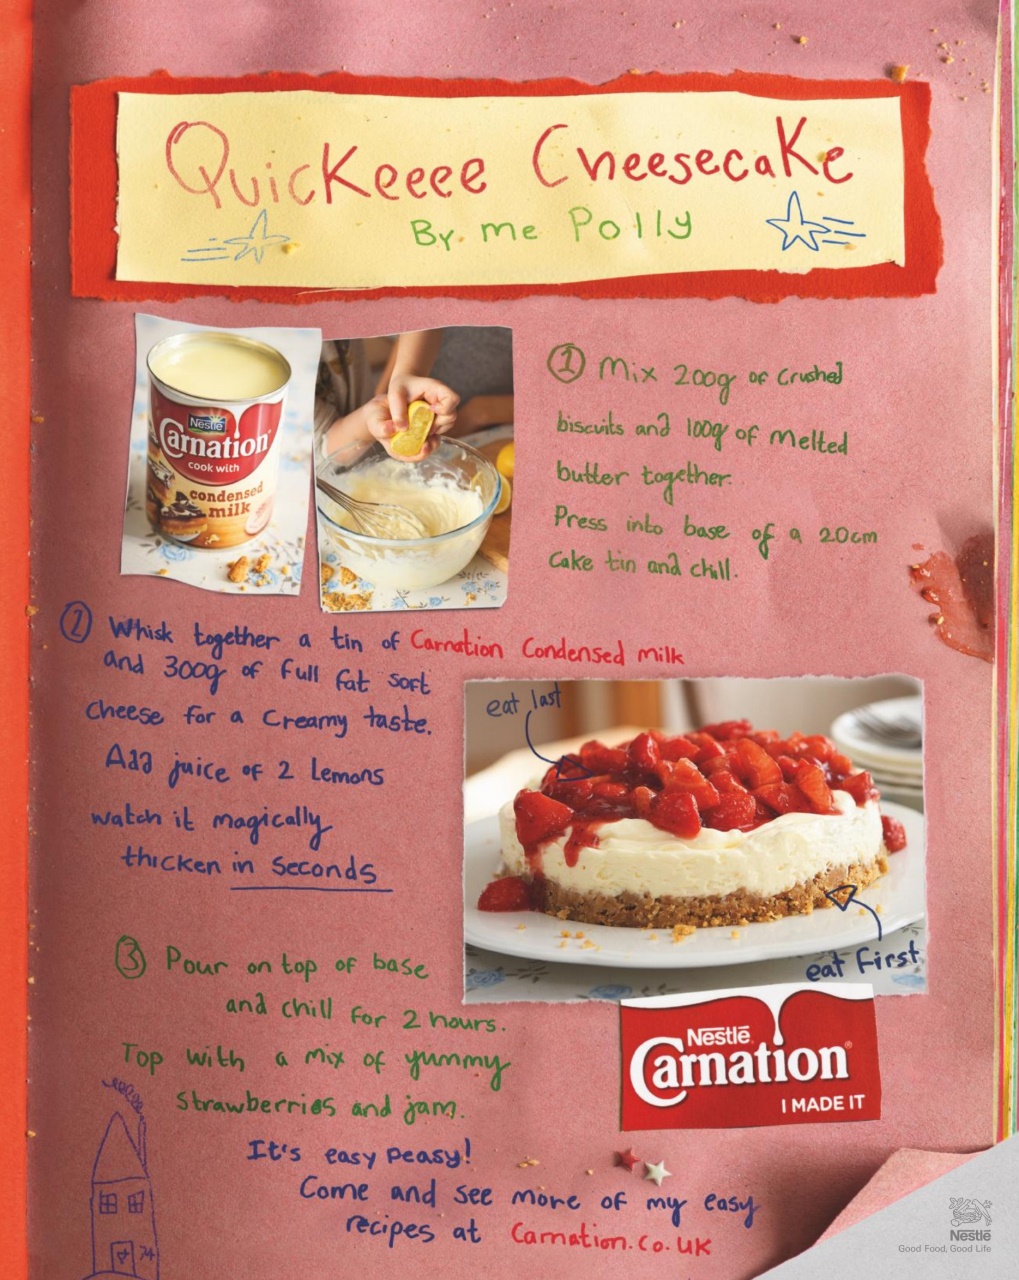 QuicKeeee CheesecaKe
By me Polly
Nestlé
Carnation
cook with
condensed
milk
① Mix 200g of Crushed
biscuits and 100g of Melted
butter together.
Press into base of a 20cm
cake tin and chill.
② Whisk together a tin of Carnation Condensed milk
and 300g of full fat soft
cheese for a Creamy taste.
Add juice of 2 Lemons
watch it magically
thicken in Seconds
eat last
eat First
③ Pour on top of base
and chill for 2 hours.
Top with a mix of yummy
Strawberries and jam.
Nestlé
Carnation®
I MADE IT
It's easy peasy!
Come and see more of my easy
recipes at Carnation.co.uk
74
Nestlé
Good Food, Good Life